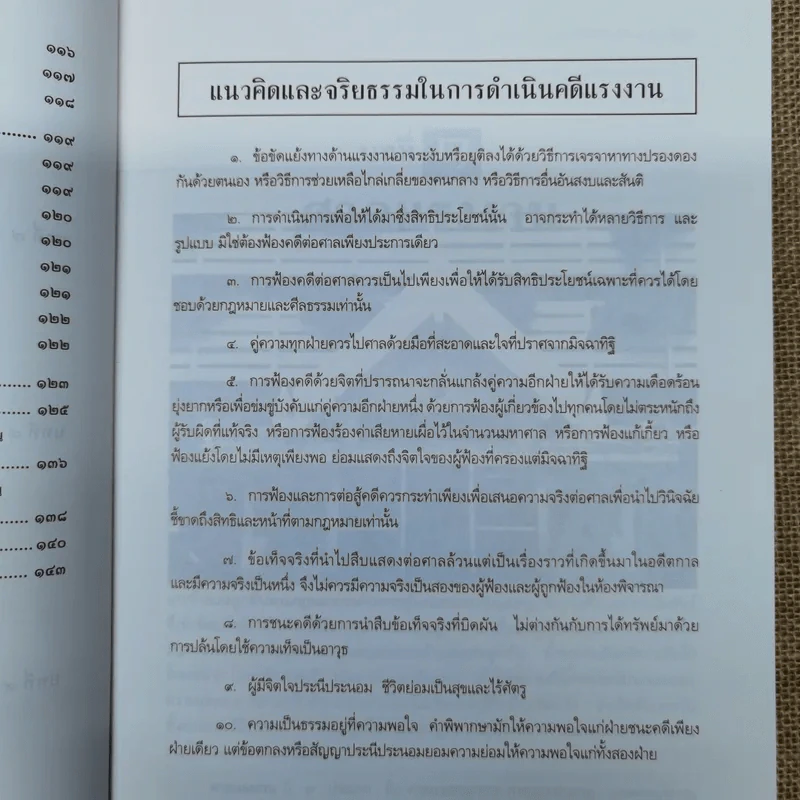 ๑๑๖
๑๑๗
๑๑๘
๑๑๙
๑๑๙
๑๑๙
๑๒๐
๑๒๐
๑๒๑
๑๒๑
๑๒๒
๑๒๒
๑๒๓
๑๒๕
๑๓๖
๑๓๘
๑๔๐
๑๔๓
แนวคิดและจริยธรรมในการดำเนินคดีแรงงาน
๑. ข้อขัดแย้งทางด้านแรงงานอาจระงับหรือยุติลงได้ด้วยวิธีการเจรจาหาทางปรองดอง
กันด้วยตนเอง หรือวิธีการช่วยเหลือไกล่เกลี่ยของคนกลาง หรือวิธีการอื่นอันสงบและสันติ
๒. การดำเนินการเพื่อให้ได้มาซึ่งสิทธิประโยชน์นั้น อาจกระทำได้หลายวิธีการ และ
รูปแบบ มิใช่ต้องฟ้องคดีต่อศาลเพียงประการเดียว
๓. การฟ้องคดีต่อศาลควรเป็นไปเพียงเพื่อให้ได้รับสิทธิประโยชน์เฉพาะที่ควรได้โดย
ชอบด้วยกฎหมายและศีลธรรมเท่านั้น
๔. คู่ความทุกฝ่ายควรไปศาลด้วยมือที่สะอาดและใจที่ปราศจากมิจฉาทิฐิ
๕. การฟ้องคดีด้วยจิตที่ปรารถนาจะกลั่นแกล้งคู่ความอีกฝ่ายให้ได้รับความเดือดร้อน
ยุ่งยากหรือเพื่อข่มขู่บังคับแก่คู่ความอีกฝ่ายหนึ่ง ด้วยการฟ้องผู้เกี่ยวข้องไปทุกคนโดยไม่ตระหนักถึง
ผู้รับผิดที่แท้จริง หรือการฟ้องร้องค่าเสียหายเผื่อไว้ในจำนวนมหาศาล หรือการฟ้องแก้เกี้ยว หรือ
ฟ้องแย้งโดยไม่มีเหตุเพียงพอ ย่อมแสดงถึงจิตใจของผู้ฟ้องที่ครองแต่มิจฉาทิฐิ
๖. การฟ้องและการต่อสู้คดีควรกระทำเพียงเพื่อเสนอความจริงต่อศาลเพื่อนำไปวินิจฉัย
ชี้ขาดถึงสิทธิและหน้าที่ตามกฎหมายเท่านั้น
๗. ข้อเท็จจริงที่นำไปสืบแสดงต่อศาลล้วนแต่เป็นเรื่องราวที่เกิดขึ้นมาในอดีตกาล
และมีความจริงเป็นหนึ่ง จึงไม่ควรมีความจริงเป็นสองของผู้ฟ้องและผู้ถูกฟ้องในห้องพิจารณา
๘. การชนะคดีด้วยการนำสืบข้อเท็จจริงที่บิดผัน ไม่ต่างกันกับการได้ทรัพย์มาด้วย
การปล้นโดยใช้ความเท็จเป็นอาวุธ
๙. ผู้มีจิตใจประนีประนอม ชีวิตย่อมเป็นสุขและไร้ศัตรู
๑๐. ความเป็นธรรมอยู่ที่ความพอใจ คำพิพากษามักให้ความพอใจแก่ฝ่ายชนะคดีเพียง
ฝ่ายเดียว แต่ข้อตกลงหรือสัญญาประนีประนอมยอมความย่อมให้ความพอใจแก่ทั้งสองฝ่าย